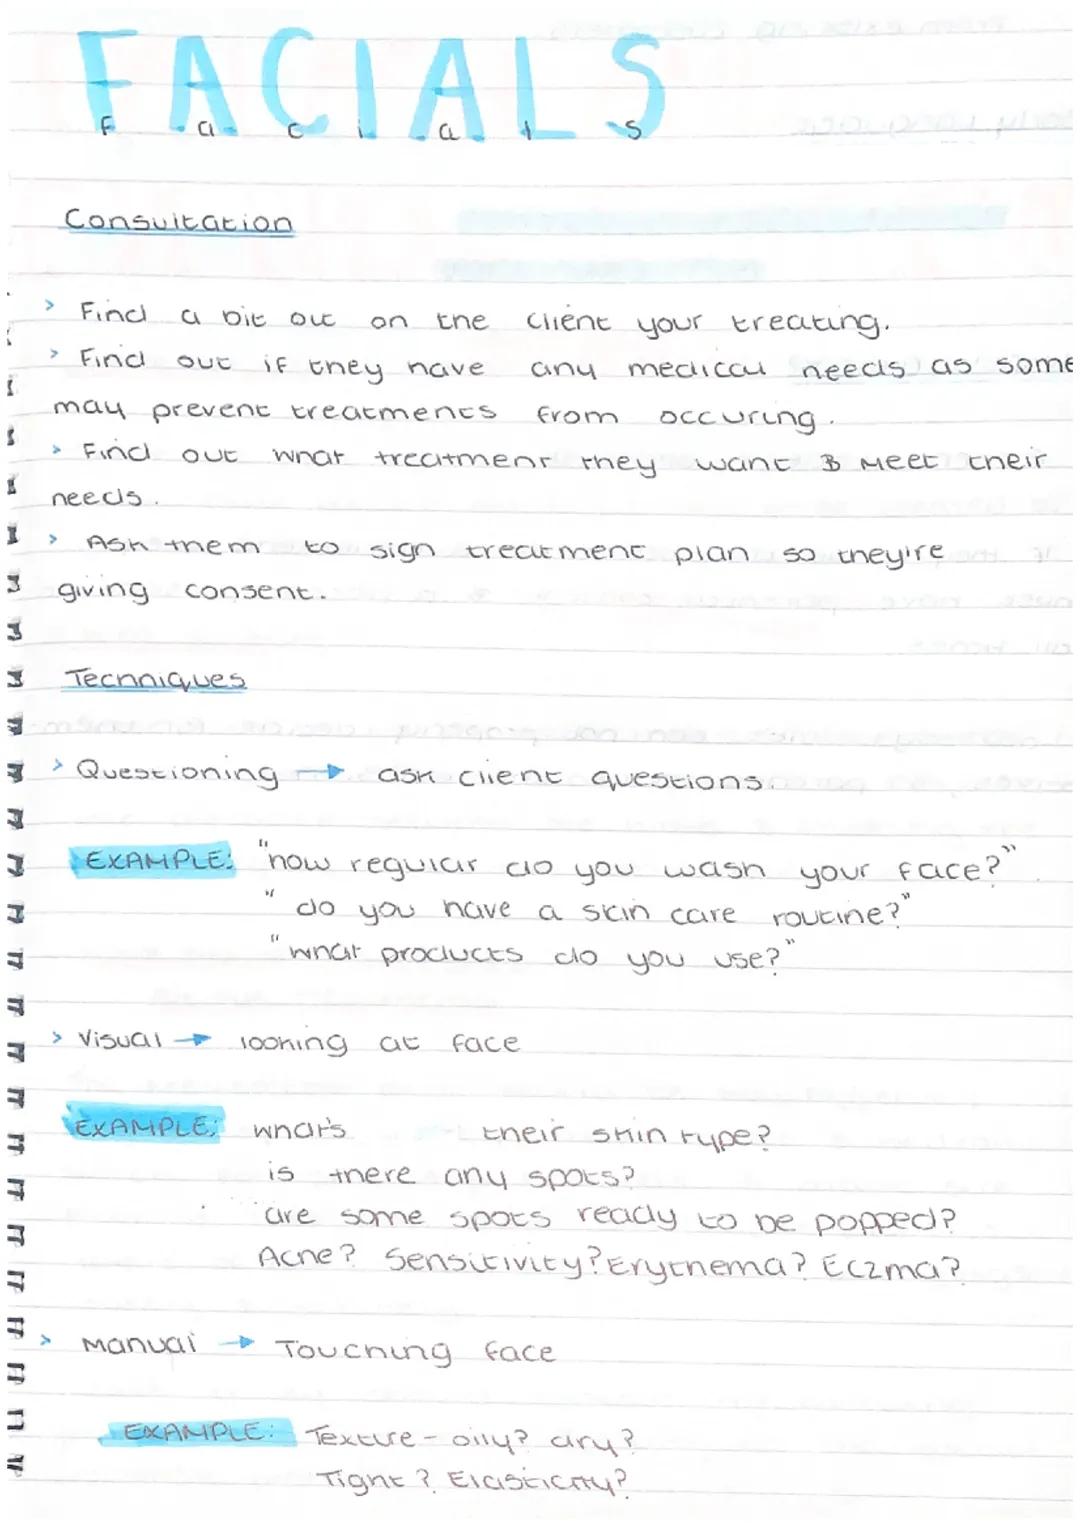 FACIALS
Facials
Consultation
> Find a bit out on the client your treating.
> Find out if they have any medical needs as some
may prevent treatments from occuring.
> Find out what treatment they want & Meet their
needs.
> Ask them to sign treatment plan so they're
giving consent.
Techniques
> Questioning → ask client questions.
EXAMPLE: "how regular do you wash your face?"
"do you have a skin care routine?"
"what products do you use?"
> Visual → looking at face
EXAMPLE: what's their skin type?
is there any spots?
are some spots ready to be popped?
Acne? Sensitivity? Erythema? Eczma?
> Manual → Touching face
EXAMPLE: Texture - oily? dry?
Tight? Elasticity?